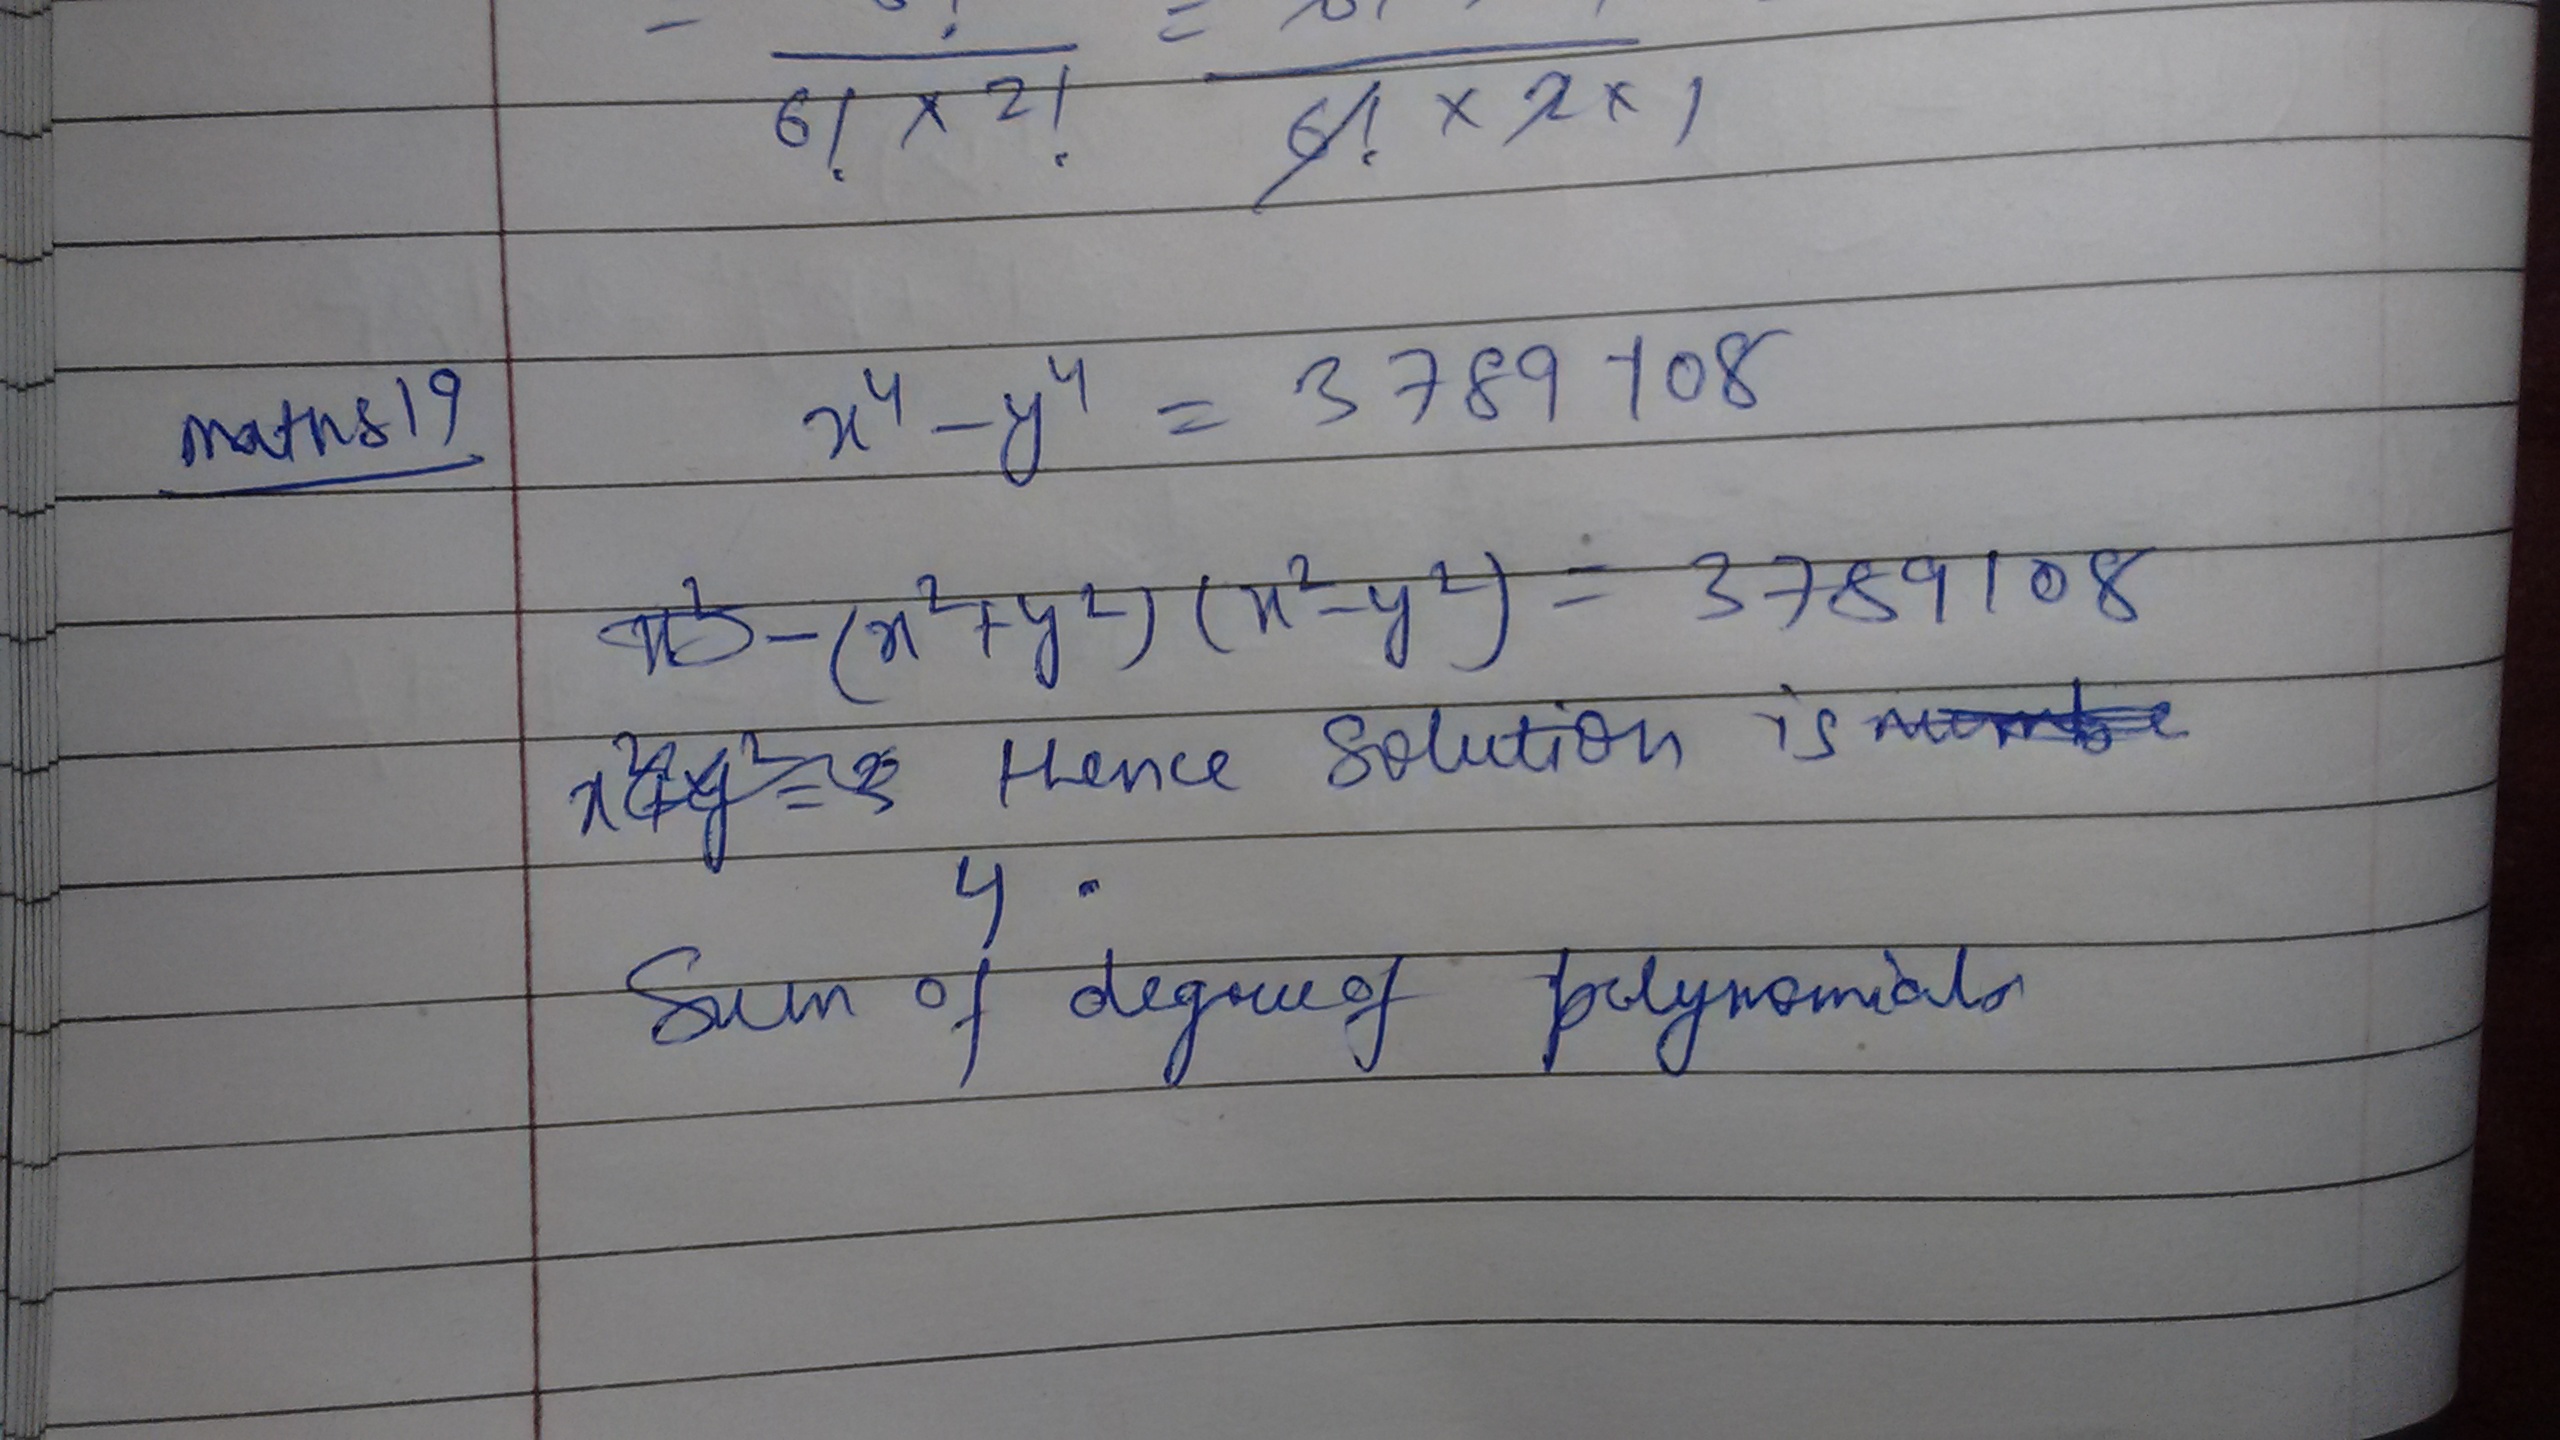 6! × 2! 6! × 2 × 1
maths19 x⁴ - y⁴ = 3789108
- (x²+y²) (x²-y²) = 3789108
Hence Solution is
4 .
Sum of degree of polynomials